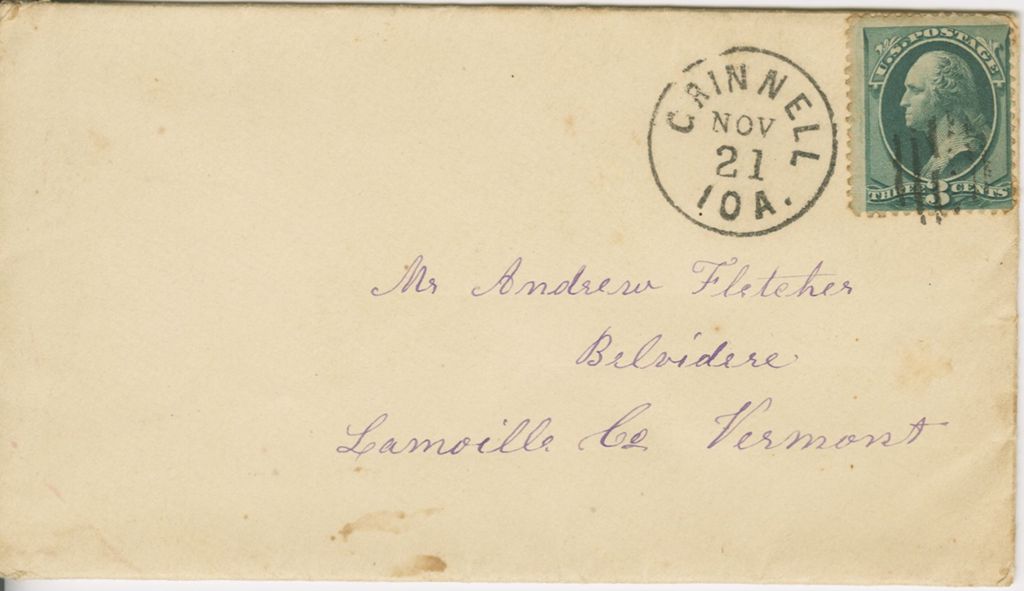 GRINNELL
NOV
21
IOA.
U.S. POSTAGE
THREE 3 CENTS
Mr Andrew Fletcher
Belvidere
Lamoille Co Vermont